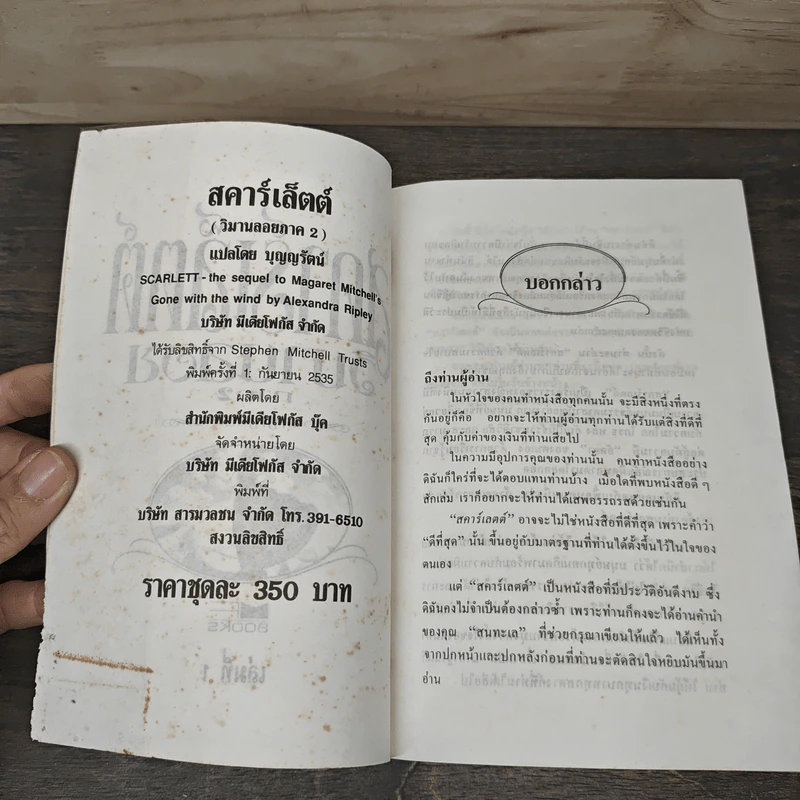 สคาร์เล็ตต์
(วิมานลอยภาค 2)
แปลโดย บุญญรัตน์
SCARLETT - the sequel to Magaret Mitchell's
Gone with the wind by Alexandra Ripley
บริษัท มีเดียโฟกัส จำกัด
ได้รับลิขสิทธิ์จาก Stephen Mitchell Trusts
พิมพ์ครั้งที่ 1: กันยายน 2535
ผลิตโดย
สำนักพิมพ์มีเดียโฟกัส บุ๊ค
จัดจำหน่ายโดย
บริษัท มีเดียโฟกัส จำกัด
พิมพ์ที่
บริษัท สารมวลชน จำกัด โทร. 391-6510
สงวนลิขสิทธิ์
ราคาชุดละ 350 บาท
BOOKS
เล่มที่ 1
บอกกล่าว
ถึงท่านผู้อ่าน
ในหัวใจของคนทำหนังสือทุกคนนั้น จะมีสิ่งหนึ่งที่ตรง
กันอยู่ก็คือ อยากจะให้ท่านผู้อ่านทุกท่านได้รับแต่สิ่งที่ดีที่
สุด คุ้มกับค่าของเงินที่ท่านเสียไป
ในความมีอุปการคุณของท่านนั้น คนทำหนังสืออย่าง
ดิฉันก็ใคร่ที่จะได้ตอบแทนท่านบ้าง เมื่อใดที่พบหนังสือดี ๆ
สักเล่ม เราก็อยากจะให้ท่านได้เสพอรรถรสด้วยเช่นกัน
“สคาร์เลตต์” อาจจะไม่ใช่หนังสือที่ดีที่สุด เพราะคำว่า
“ดีที่สุด” นั้น ขึ้นอยู่กับมาตรฐานที่ท่านได้ตั้งขึ้นไว้ในใจของ
ตนเอง
แต่ “สคาร์เลตต์” เป็นหนังสือที่มีประวัติอันดีงาม ซึ่ง
ดิฉันคงไม่จำเป็นต้องกล่าวซ้ำ เพราะท่านก็คงจะได้อ่านคำนำ
ของคุณ “สนทะเล” ที่ช่วยกรุณาเขียนให้แล้ว ได้เห็นทั้ง
จากปกหน้าและปกหลังก่อนที่ท่านจะตัดสินใจหยิบมันขึ้นมา
อ่าน